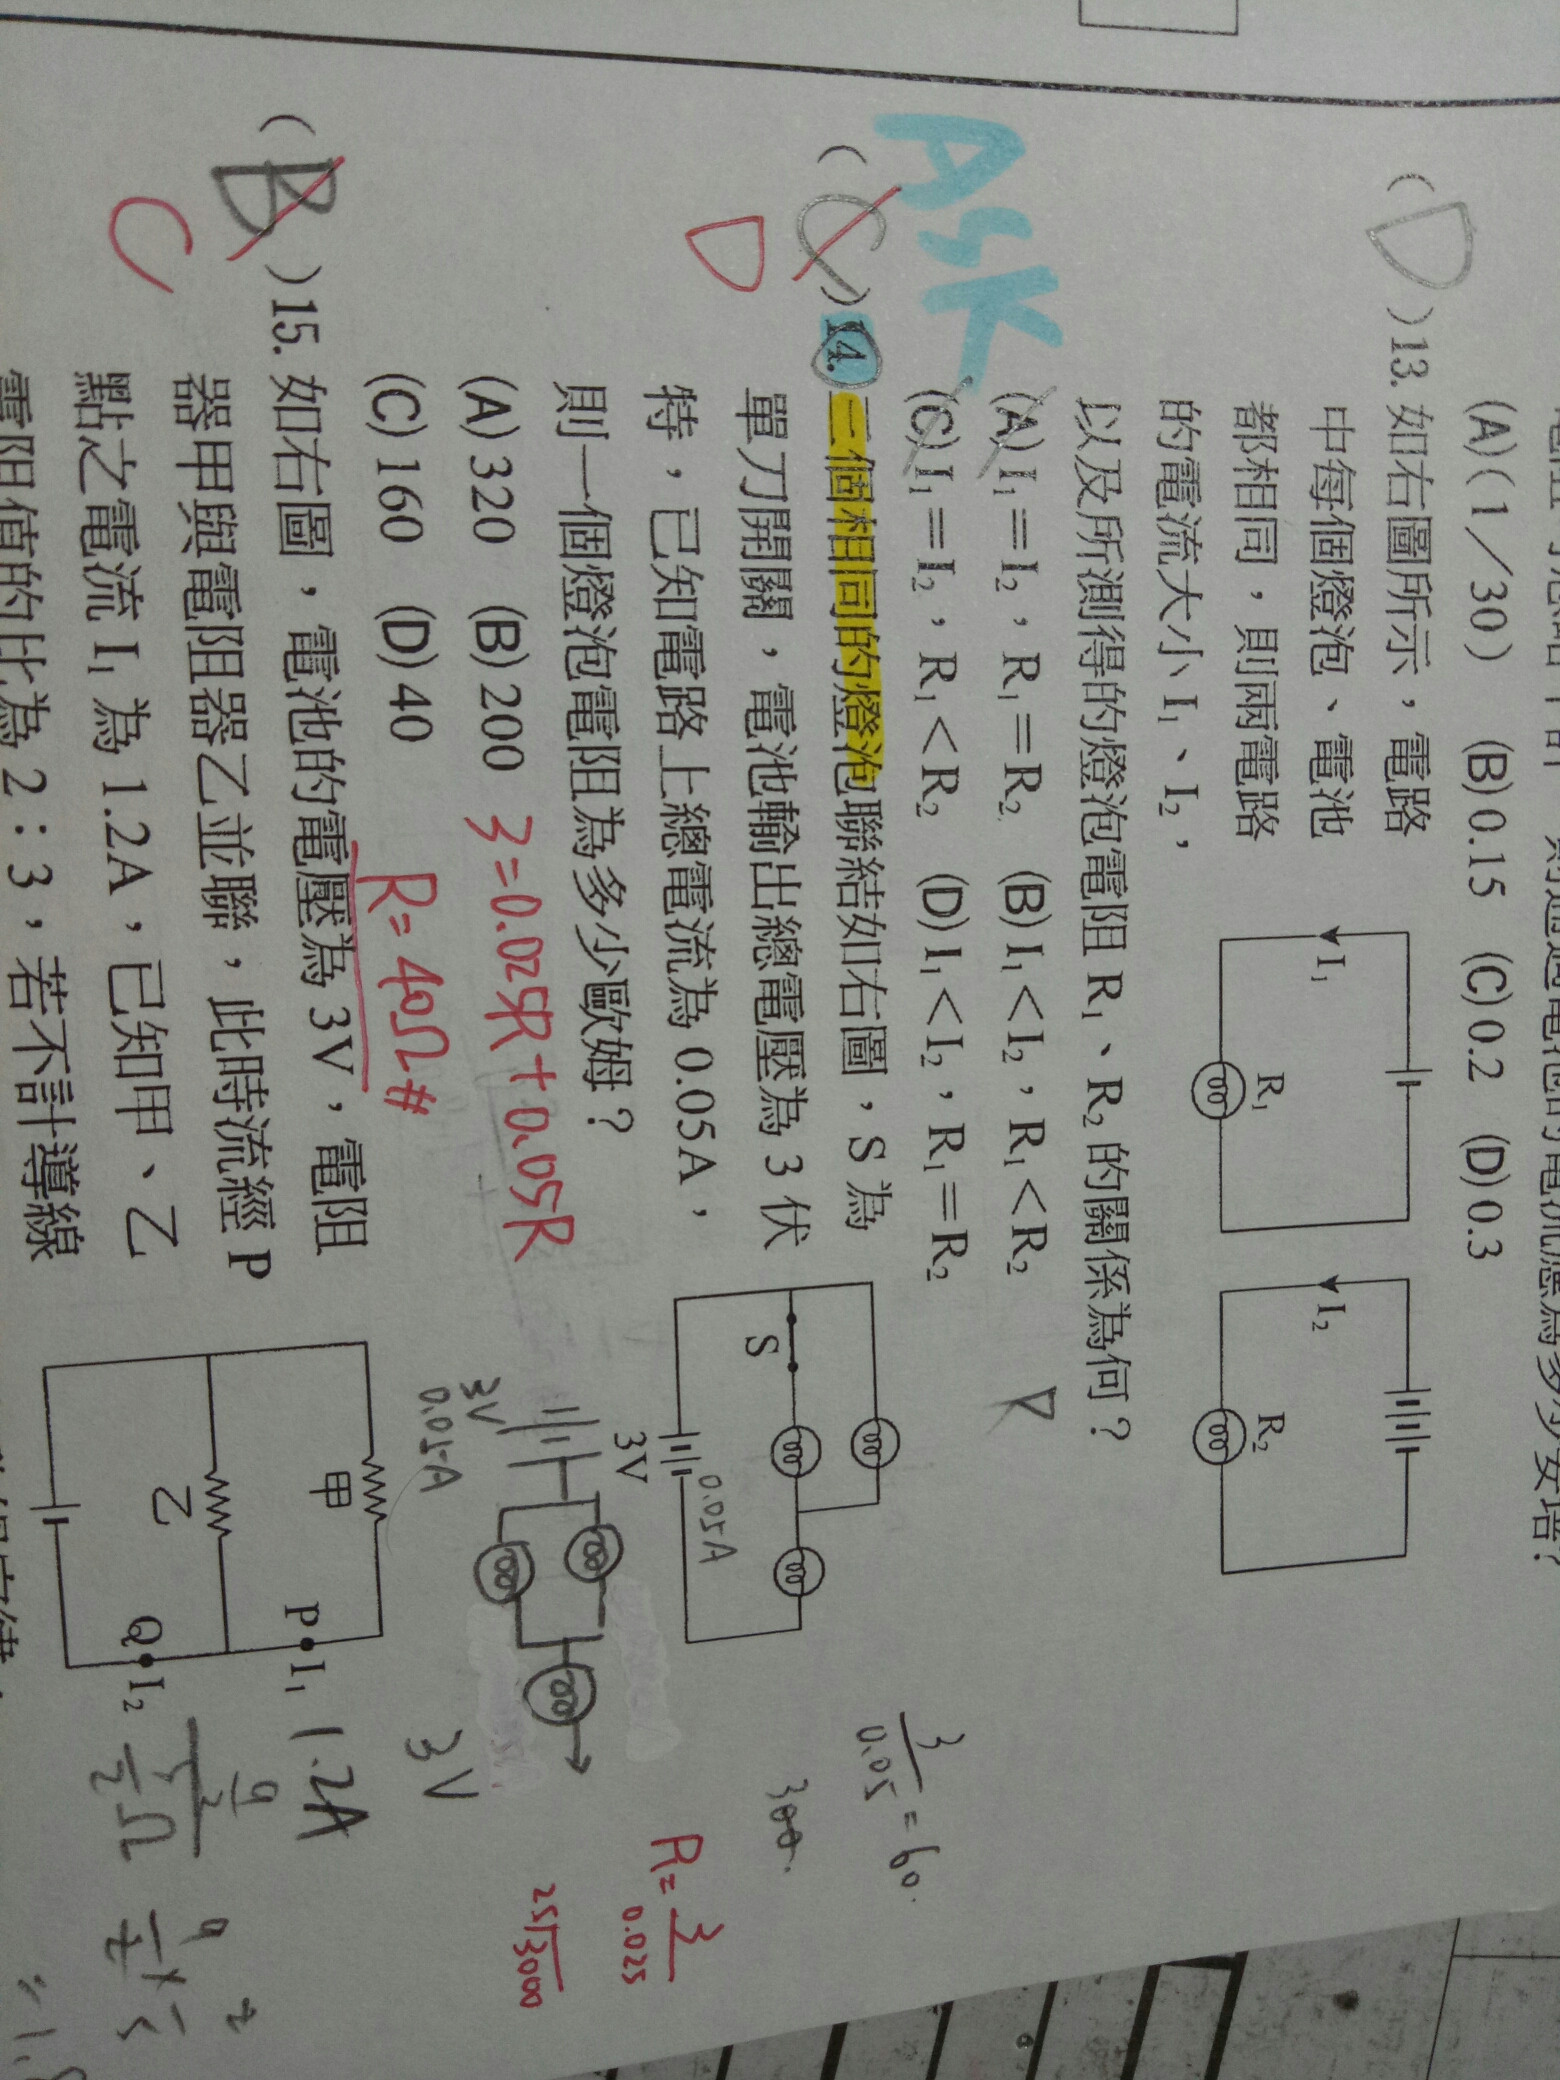 (A)(1／30) (B)0.15 (C)0.2 (D)0.3
( D )13. 如右圖所示，電路
中每個燈泡、電池
都相同，則兩電路
的電流大小 I₁、I₂，
以及所測得的燈泡電阻 R₁、R₂ 的關係為何？
(A) I₁＝I₂，R₁＝R₂ (B) I₁＜I₂，R₁＜R₂
(C) I₁＝I₂，R₁＜R₂ (D) I₁＜I₂，R₁＝R₂
I₁
R₁
I₂
R₂
ASK
( C )14. 三個相同的燈泡聯結如右圖，S 為
D
單刀開關，電池輸出總電壓為 3 伏
特，已知電路上總電流為 0.05A，
則一個燈泡電阻為多少歐姆？
(A) 320 (B) 200
(C) 160 (D) 40
3=0.025R+0.05R
R=40Ω#
S
3V
0.05A
3V
0.05A
3/0.05=60.
300.
R=3/0.025
25√3000
( B )15. 如右圖，電池的電壓為 3V，電阻
C
器甲與電阻器乙並聯，此時流經 P
點之電流 I₁ 為 1.2A，已知甲、乙
電阻值的比為 2：3，若不計導線
甲
乙
P I₁ 1.2A
Q I₂
3V